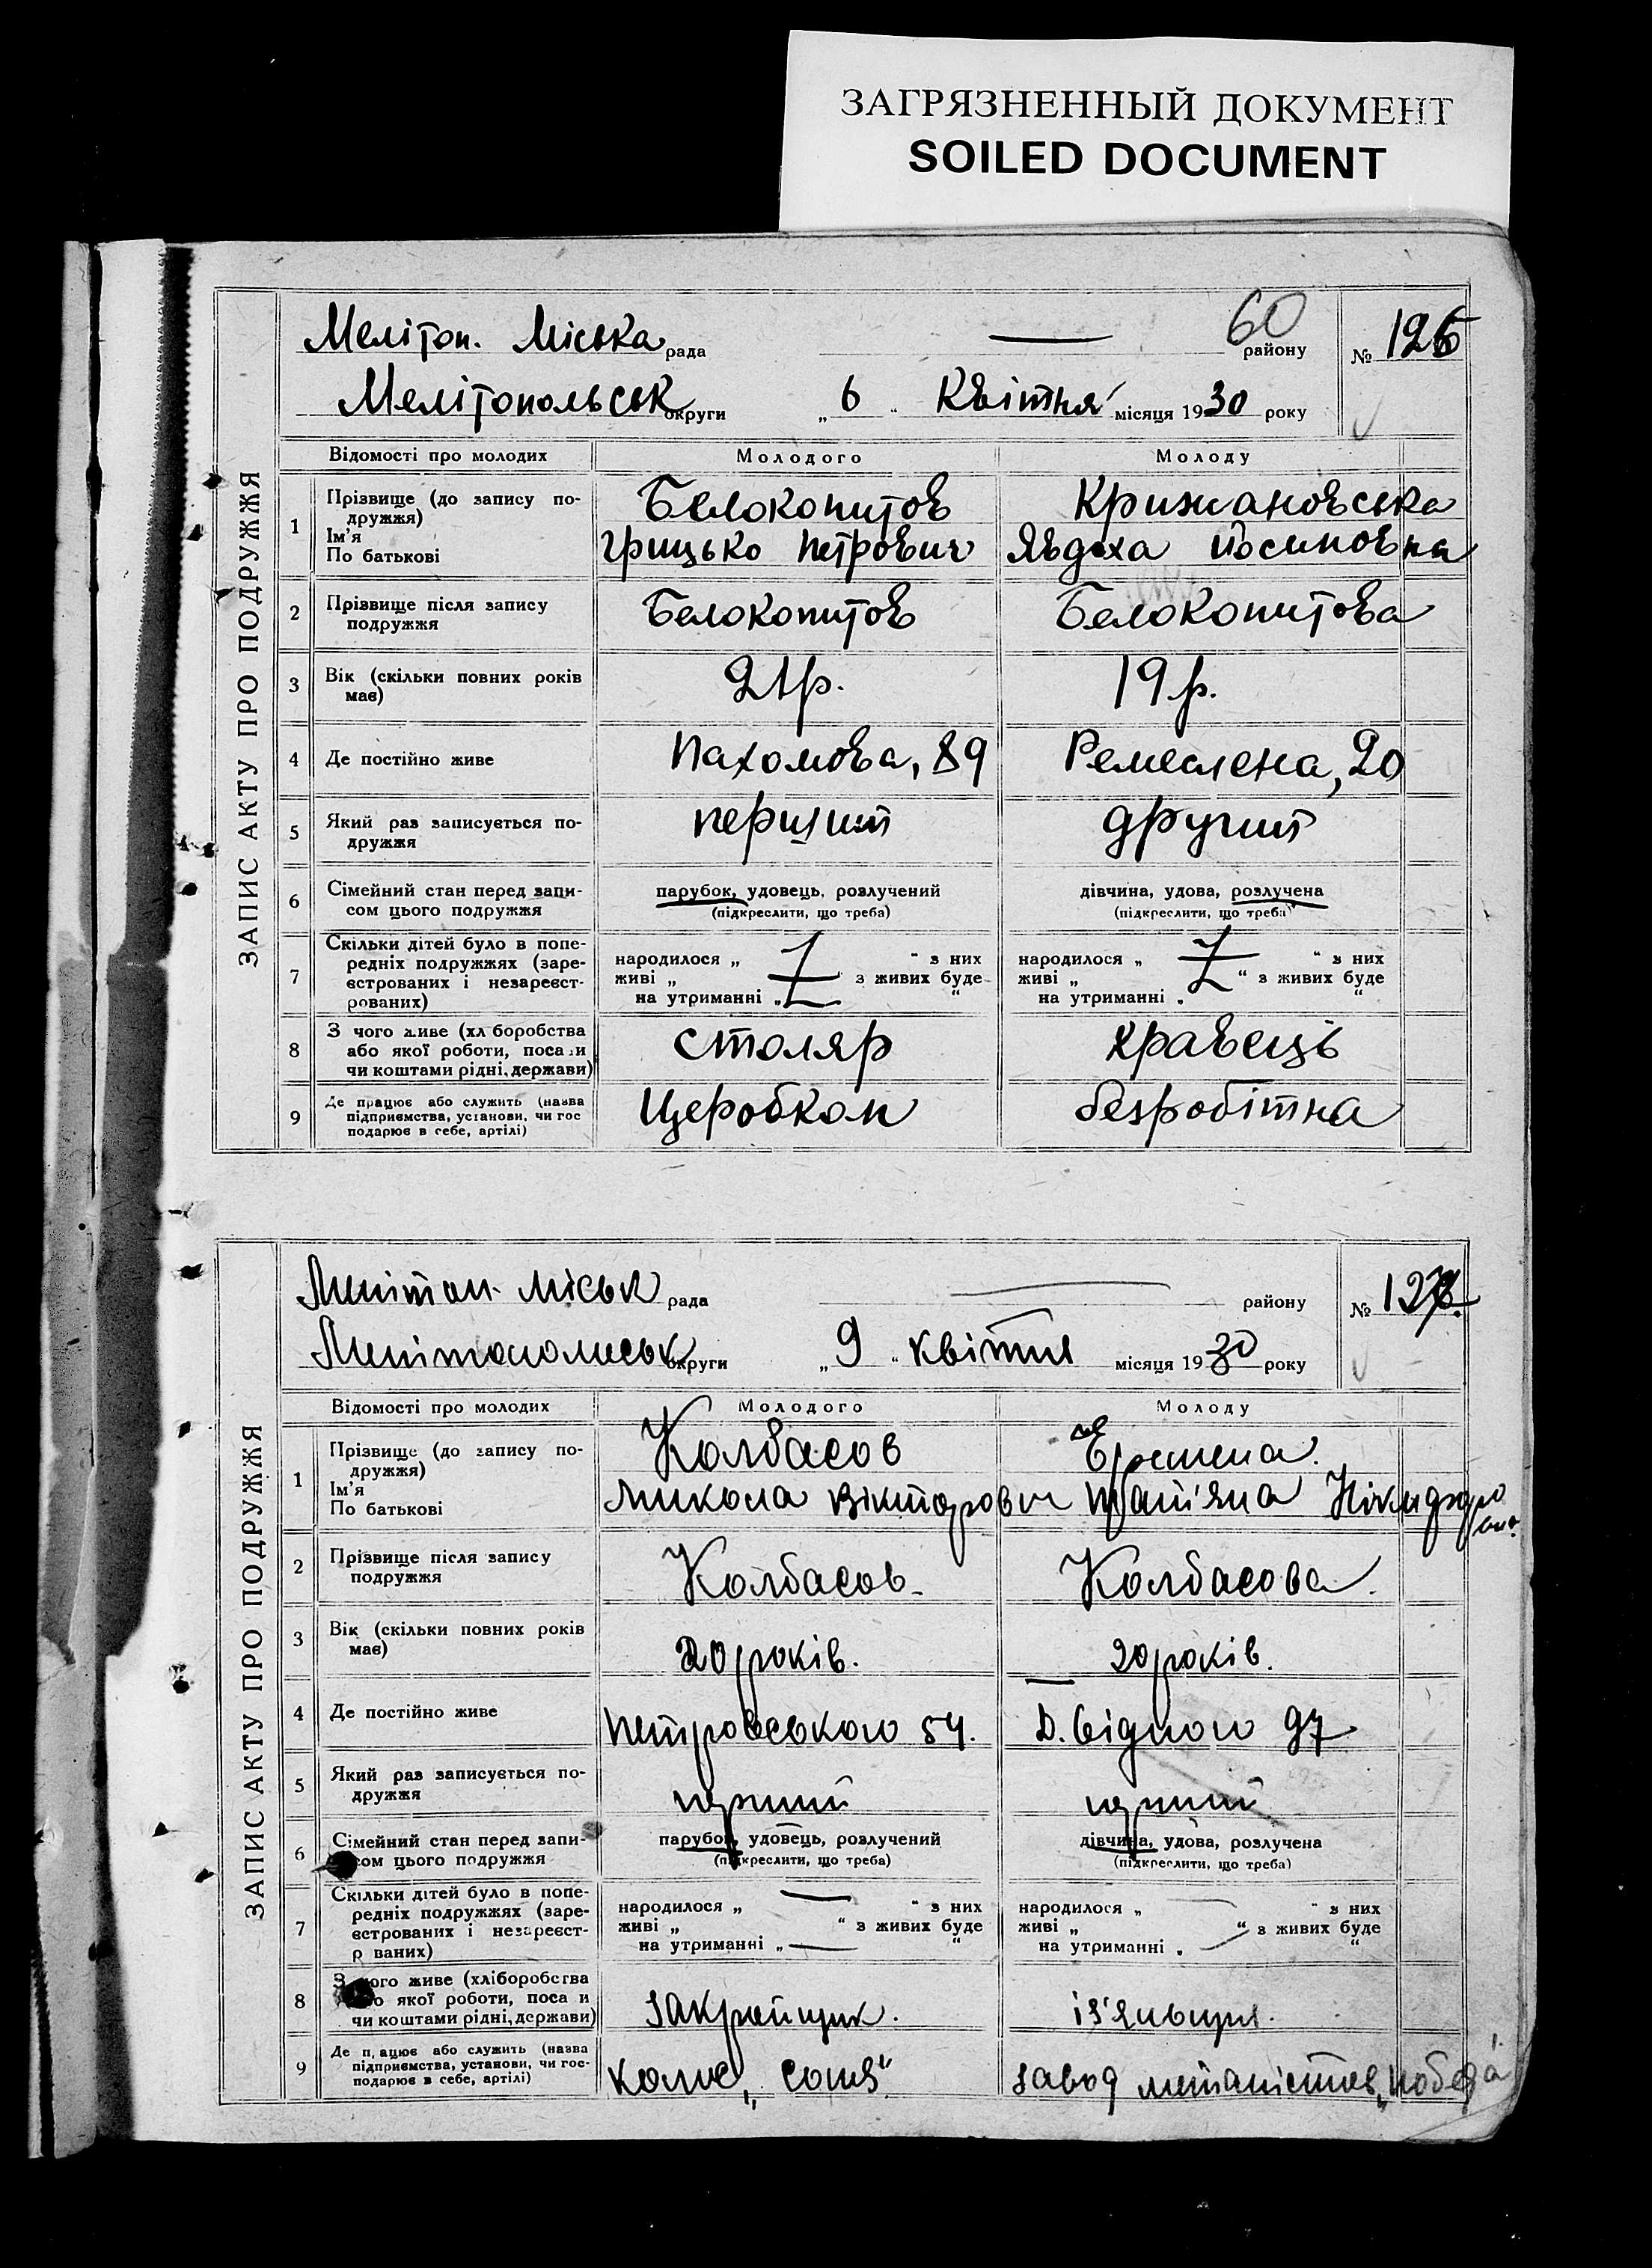 ЗАГРЯЗНЕННЫЙ ДОКУМЕНТ
SOILED DOCUMENT
60
ЗАПИС АКТУ ПРО ПОДРУЖЖЯ
Мелітоп. Міська рада — району № 126
Мелітопольськ округи „ 6 “ Квітня місяця 1930 року
Відомості про молодих Молодого Молоду
1 Прізвище (до запису по-
дружжя)
Ім'я
По батькові
Белокопитов Крижановська
Грицько Петрович Явдоха Йосиповна
2 Прізвище після запису
подружжя
Белокопитов Белокопитова
3 Вік (скільки повних років
має)
21 р. 19 р.
4 Де постійно живе Пахомова, 89 Ремеслена, 20
5 Який раз записується по-
дружжя
перший другий
6 Сімейний стан перед запи-
сом цього подружжя
парубок, удовець, розлучений
(підкреслити, що треба)
дівчина, удова, розлучена
(підкреслити, що треба)
7 Скільки дітей було в попе-
редніх подружжях (заре-
єстрованих і незареєст-
рованих)
народилося „ “ з них
живі „ з живих буде
на утриманні „ “
народилося „ “ з них
живі „ “ з живих буде
на утриманні „ “
8 З чого живе (хл боробства
або якої роботи, поса и
чи коштами рідні, держави)
столяр кравець
9 Де працює або служить (назва
підприємства, установи, чи гос
подарює в себе, артілі)
Церобкоп безробітна
ЗАПИС АКТУ ПРО ПОДРУЖЖЯ
Мелітоп. міськ рада — району № 127.
Мелітопольськ округи „ 9 “ квітня місяця 1930 року
Відомості про молодих Молодого Молоду
1 Прізвище (до запису по-
дружжя)
Ім'я
По батькові
Колбасов
Микола Вікторович Тат'яна
2 Прізвище після запису
подружжя
Колбасов. Колбасова.
3 Вік (скільки повних років
має)
20 років. 20 років.
4 Де постійно живе Петровського 54. Д. Бідного 97
5 Який раз записується по-
дружжя
перший перший
6 Сімейний стан перед запи-
сом цього подружжя
парубок, удовець, розлучений
(підкреслити, що треба)
дівчина, удова, розлучена
(підкреслити, що треба)
7 Скільки дітей було в попе-
редніх подружжях (заре-
єстрованих і незареєст-
р ваних)
народилося „ — “ з них
живі „ “ з живих буде
на утриманні „ — “
народилося „ — “ з них
живі „ “ з живих буде
на утриманні „ — “
8 З чого живе (хліборобства
або якої роботи, поса и
чи коштами рідні, держави)
закройщик.
9 Де п ацює або служить (назва
підприємства, установи, чи гос-
подарює в себе, артілі)
завод „Победа“